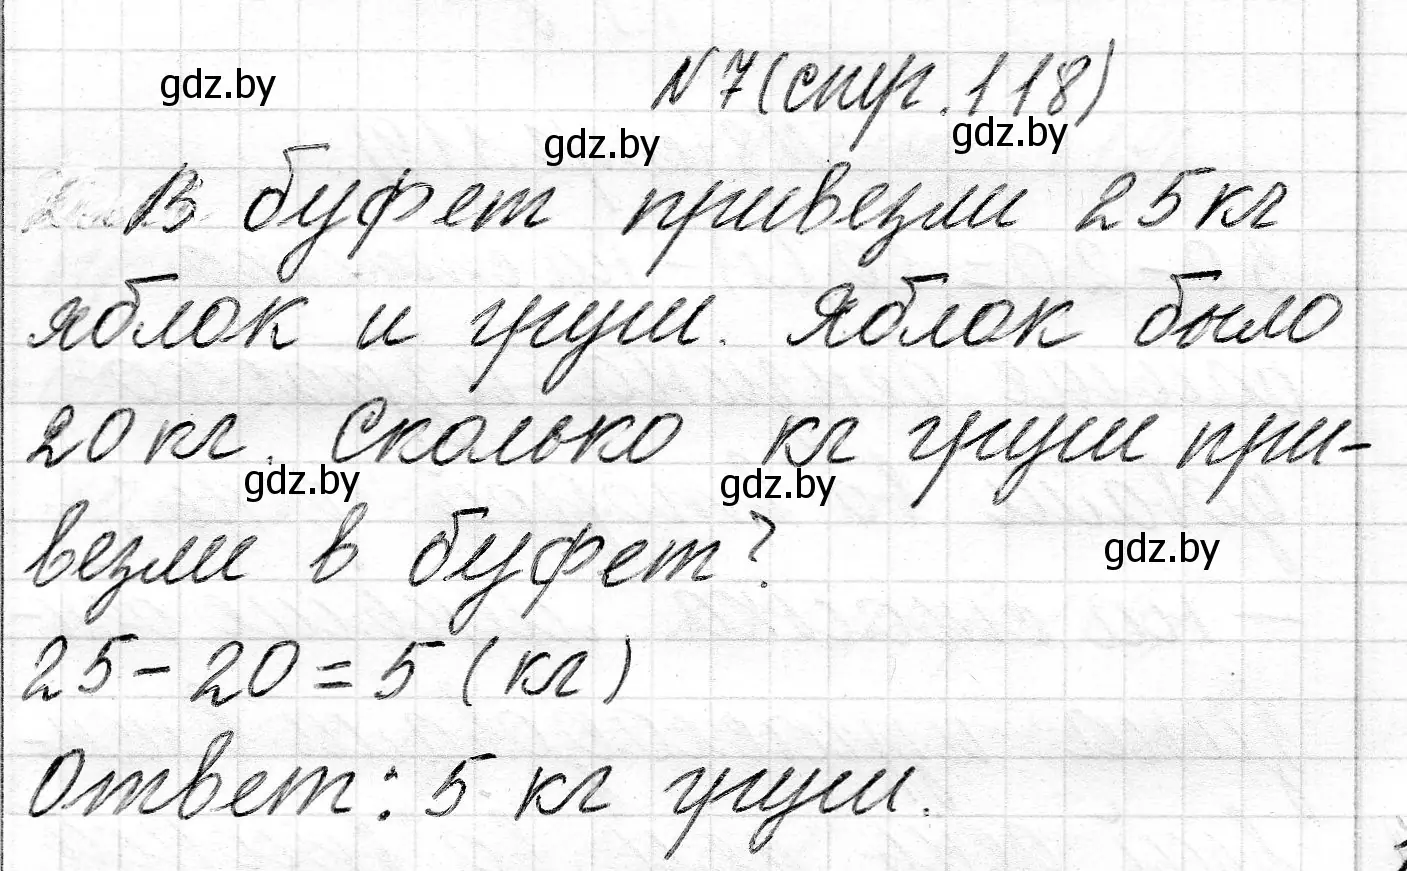 gdz.by
N 7 (стр. 118)
gdz.by
gdz.by
В буфет привезли 25 кг
яблок и груш. Яблок было
20 кг. Сколько кг груш при-
gdz.by
gdz.by
везли в буфет?
gdz.by
25 - 20 = 5 (кг)
Ответ: 5 кг груш.